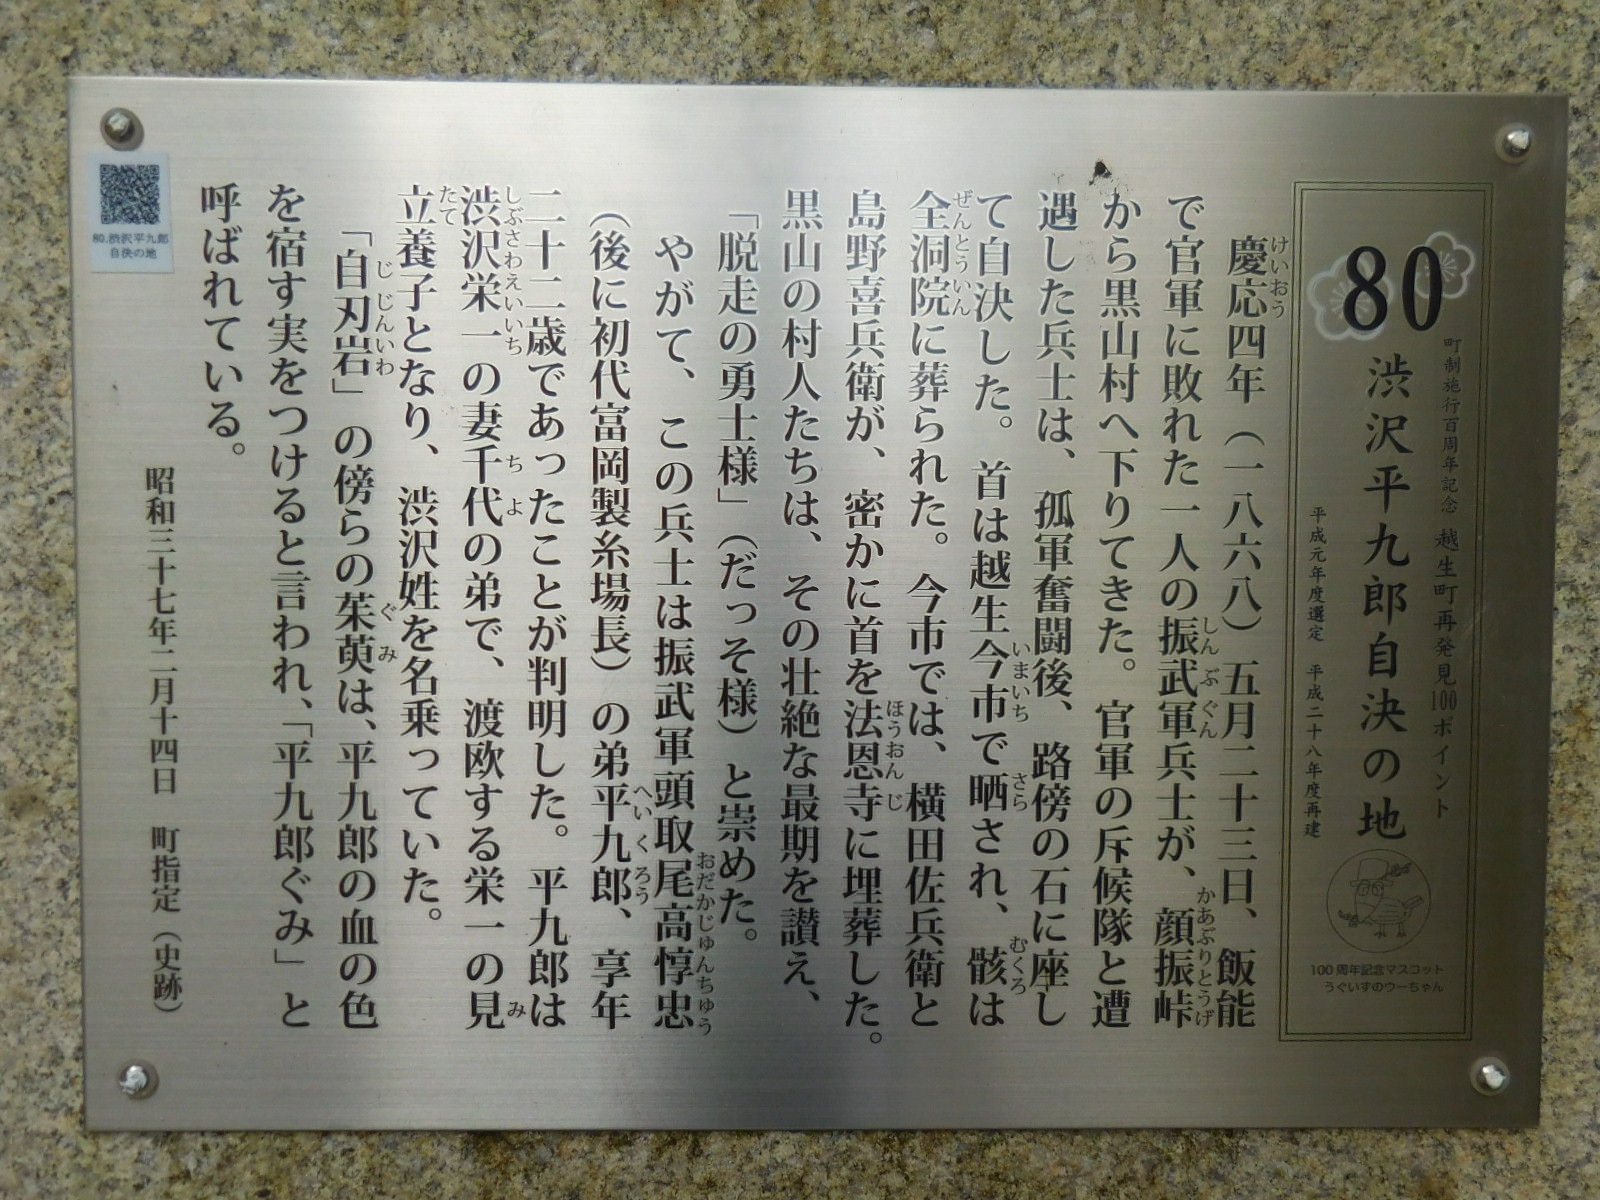 町制施行百周年記念 越生町再発見100ポイント
80 渋沢平九郎自決の地
平成元年度選定 平成二十八年度再建
100周年記念マスコット
うぐいすのウーちゃん
慶応四年（一八六八）五月二十三日、飯能
けいおう
で官軍に敗れた一人の振武軍兵士が、顔振峠
しんぶぐん かあぶりとうげ
から黒山村へ下りてきた。官軍の斥候隊と遭
遇した兵士は、孤軍奮闘後、路傍の石に座し
て自決した。首は越生今市で晒され、骸は
いまいち さら むくろ
全洞院に葬られた。今市では、横田佐兵衛と
ぜんとういん
島野喜兵衛が、密かに首を法恩寺に埋葬した。
ほうおんじ
黒山の村人たちは、その壮絶な最期を讃え、
「脱走の勇士様」（だっそ様）と崇めた。
やがて、この兵士は振武軍頭取尾高惇忠
おだかじゅんちゅう
（後に初代富岡製糸場長）の弟平九郎、享年
へいくろう
二十二歳であったことが判明した。平九郎は
渋沢栄一の妻千代の弟で、渡欧する栄一の見
しぶさわえいいち ちよ み
立養子となり、渋沢姓を名乗っていた。
たて
「自刃岩」の傍らの茱萸は、平九郎の血の色
じじんいわ ぐみ
を宿す実をつけると言われ、「平九郎ぐみ」と
呼ばれている。
昭和三十七年二月十四日 町指定（史跡）
80.渋沢平九郎
自決の地